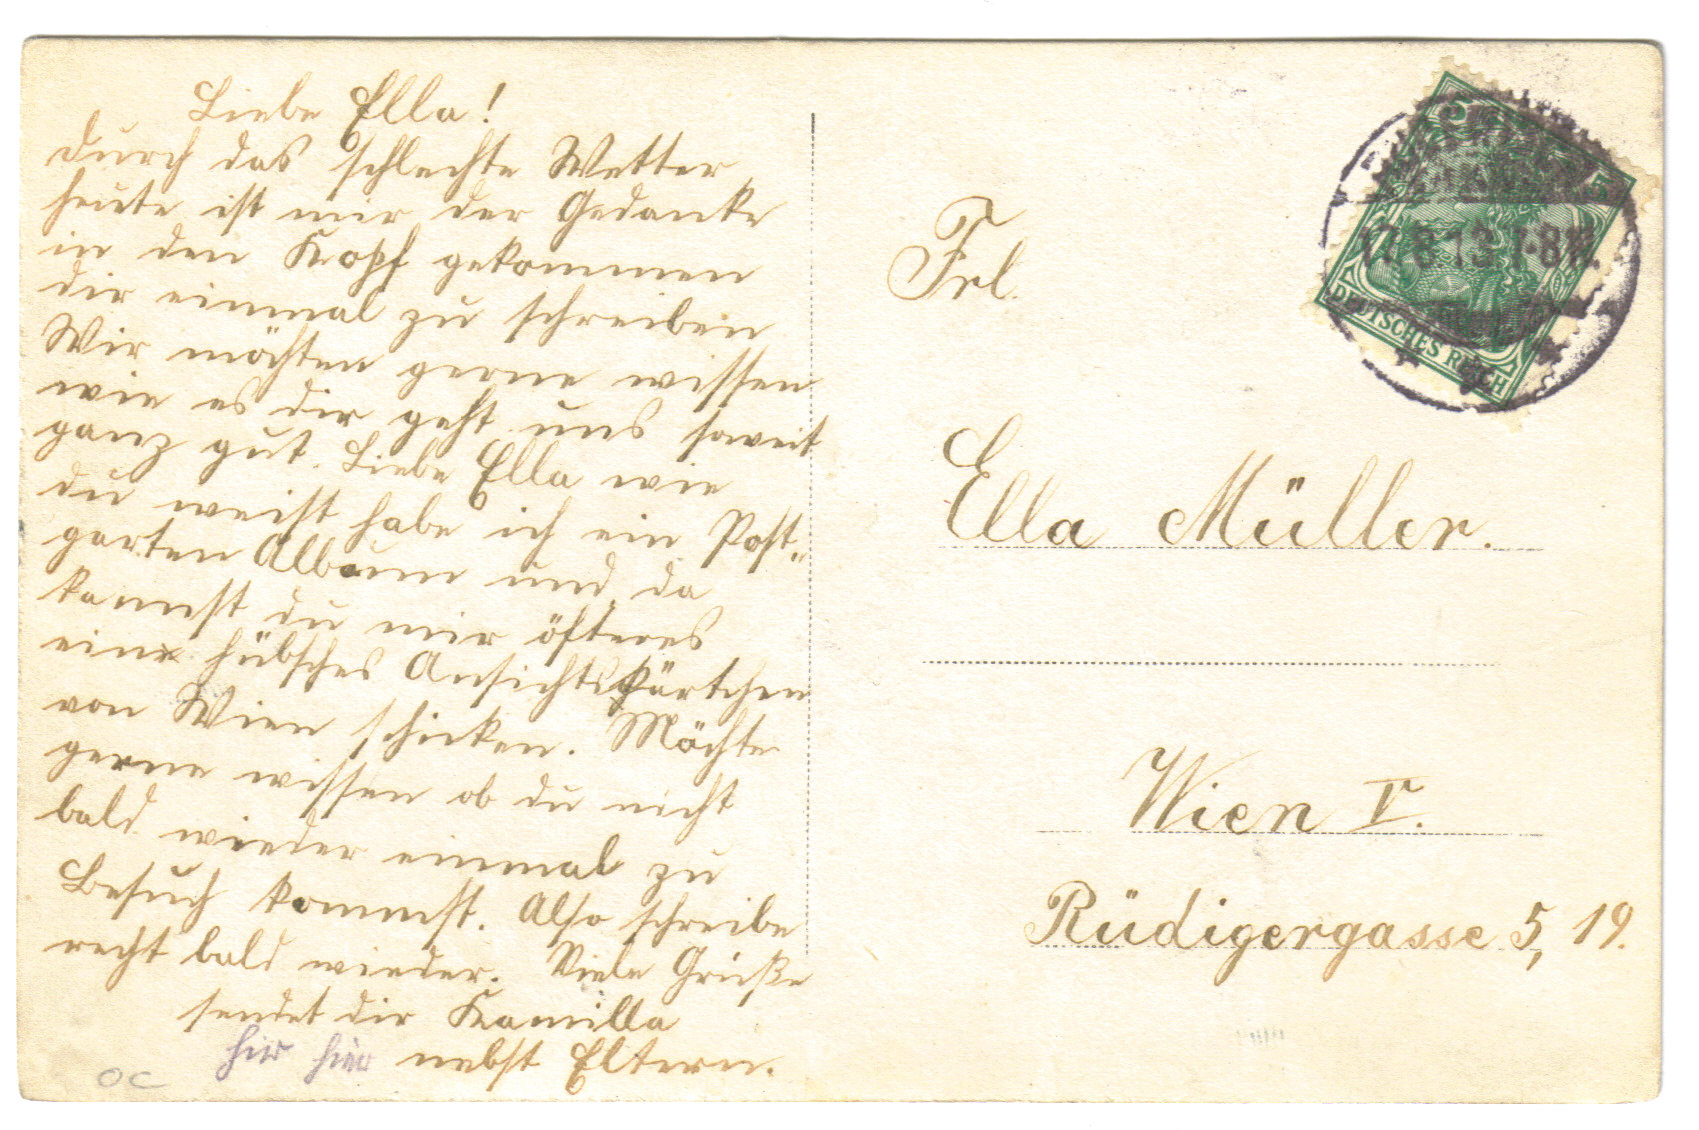 Liebe Ella!
durch das schlechte Wetter
heute ist mir der Gedanke
in den Kopf gekommen
dir einmal zu schreiben
Wir möchten gerne wissen
wie es dir geht uns soweit
ganz gut. Liebe Ella wie
du weist habe ich ein Post-
garten Album und da
kannst du mir öfteres
ein hübsches Ansichtskärtchen
von Wien schicken. Möchte
gerne wissen ob du nicht
bald wieder einmal zu
Besuch kommst. Also schreibe
recht bald wieder. Viele Grüße
sendet dir Kamilla
nebst Eltern.
OC
Frl.
Ella Müller.
Wien V.
Rüdigergasse 5, 19.
5 5
DEUTSCHES REICH
17.8.13.7-8